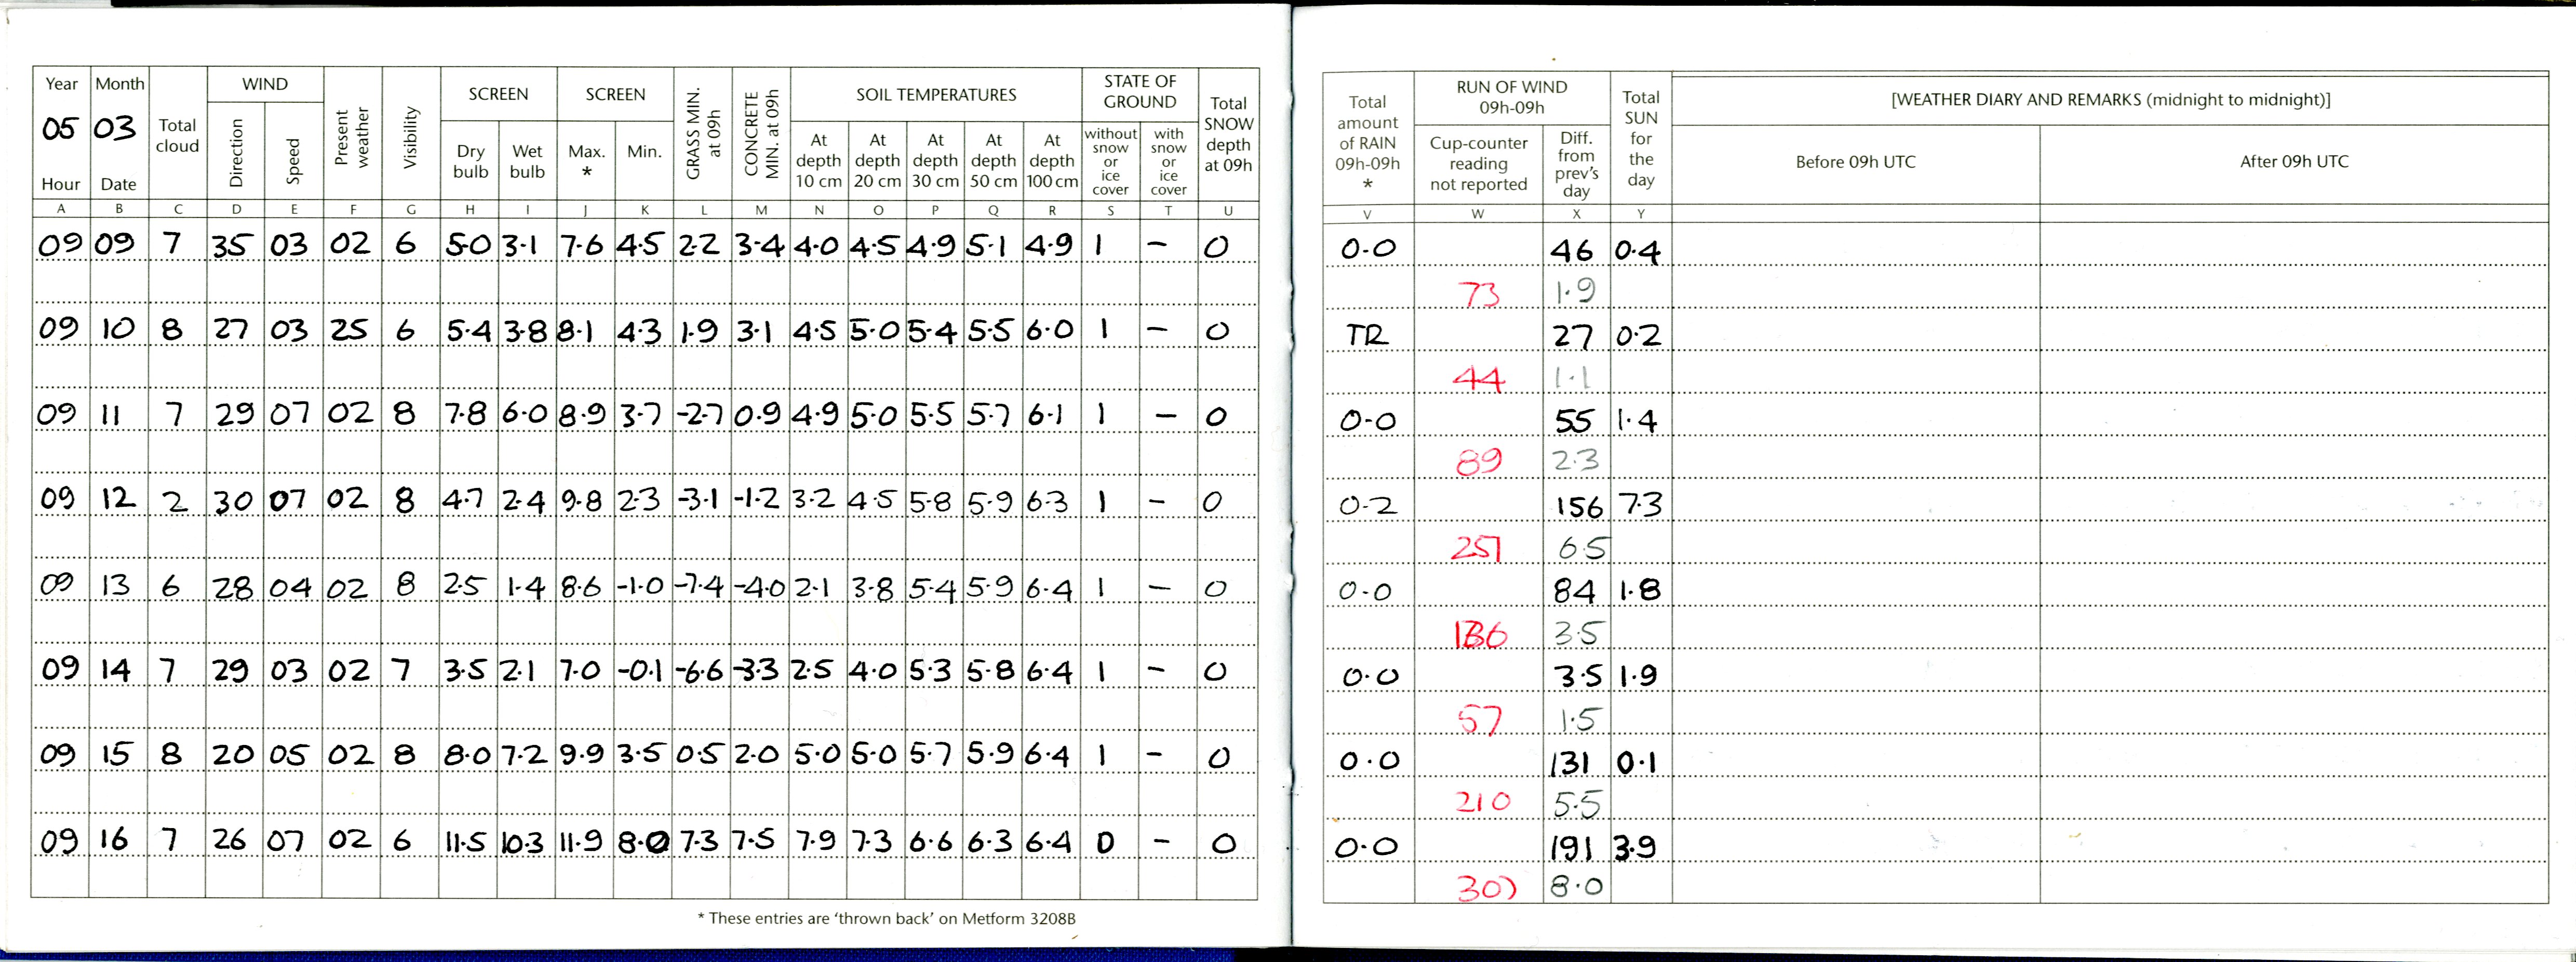 Year Month Total cloud WIND Present weather Visibility SCREEN SCREEN GRASS MIN. at 09h CONCRETE MIN. at 09h SOIL TEMPERATURES STATE OF GROUND Total SNOW depth at 09h
05 03
Hour Date Direction Speed Dry bulb Wet bulb Max. * Min. At depth 10 cm At depth 20 cm At depth 30 cm At depth 50 cm At depth 100 cm without snow or ice cover with snow or ice cover
A B C D E F G H I J K L M N O P Q R S T U
09 09 7 35 03 02 6 5.0 3.1 7.6 4.5 2.2 3.4 4.0 4.5 4.9 5.1 4.9 1 - 0
09 10 8 27 03 25 6 5.4 3.8 8.1 4.3 1.9 3.1 4.5 5.0 5.4 5.5 6.0 1 - 0
09 11 7 29 07 02 8 7.8 6.0 8.9 3.7 -2.7 0.9 4.9 5.0 5.5 5.7 6.1 1 - 0
09 12 2 30 07 02 8 4.7 2.4 9.8 2.3 -3.1 -1.2 3.2 4.5 5.8 5.9 6.3 1 - 0
09 13 6 28 04 02 8 2.5 1.4 8.6 -1.0 -7.4 -4.0 2.1 3.8 5.4 5.9 6.4 1 - 0
09 14 7 29 03 02 7 3.5 2.1 7.0 -0.1 -6.6 -3.3 2.5 4.0 5.3 5.8 6.4 1 - 0
09 15 8 20 05 02 8 8.0 7.2 9.9 3.5 0.5 2.0 5.0 5.0 5.7 5.9 6.4 1 - 0
09 16 7 26 07 02 6 11.5 10.3 11.9 8.0 7.3 7.5 7.9 7.3 6.6 6.3 6.4 0 - 0
* These entries are ‘thrown back’ on Metform 3208B
Total amount of RAIN 09h-09h * RUN OF WIND 09h-09h Total SUN for the day [WEATHER DIARY AND REMARKS (midnight to midnight)]
Cup-counter reading not reported Diff. from prev's day Before 09h UTC After 09h UTC
V W X Y
0.0 46 0.4
73 1.9
TR 27 0.2
44 1.1
0.0 55 1.4
89 2.3
0.2 156 7.3
251 6.5
0.0 84 1.8
3.5
0.0 3.5 1.9
57 1.5
0.0 131 0.1
210 5.5
0.0 191 3.9
8.0